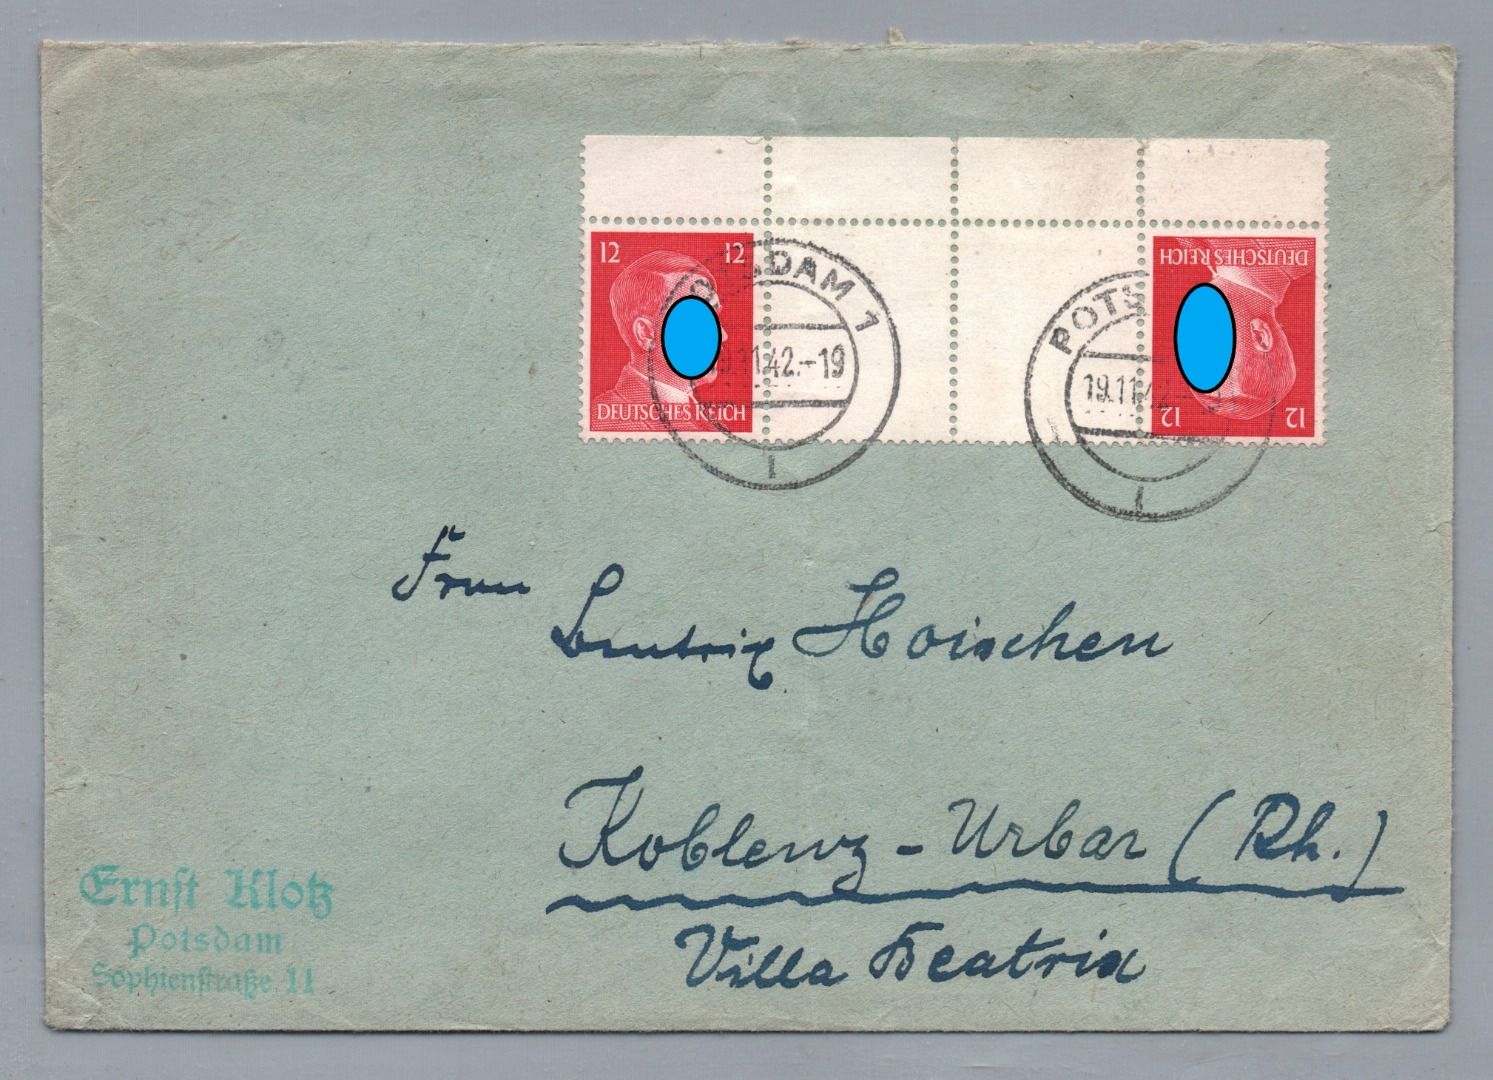 12 12
DEUTSCHES REICH
POTSDAM 1
19.11.42.-19
i
DEUTSCHES REICH
12 12
POTS
19.11.42.-
i
Frau
Beatrix Hoischen
Koblenz-Urbar (Rh.)
Villa Beatrix
Ernst Klotz
Potsdam
Sophienstraße 11